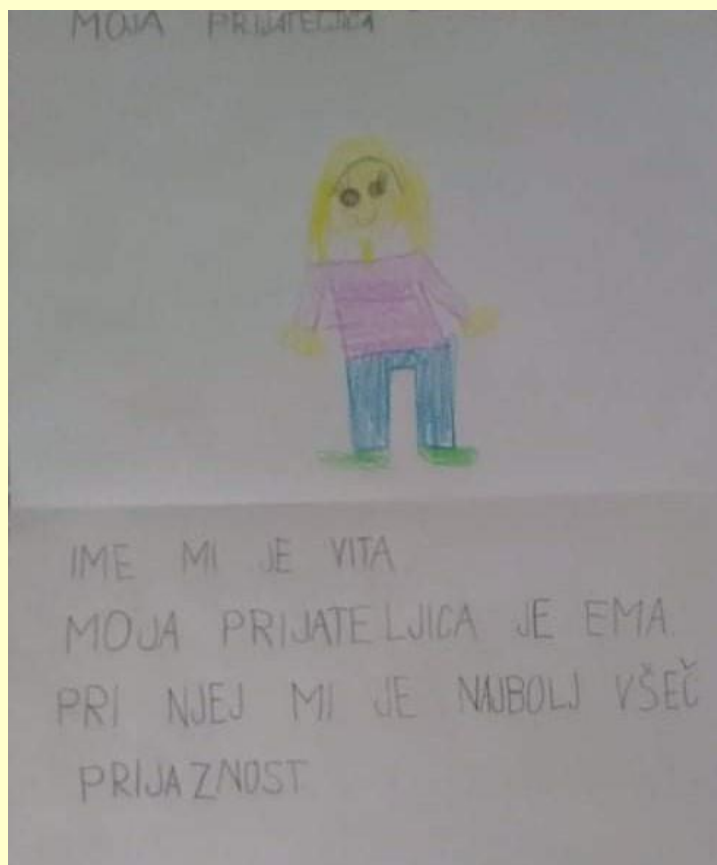 MOJA PRIJATELJICA
IME MI JE VITA
MOJA PRIJATELJICA JE EMA.
PRI NJEJ MI JE NAJBOLJ VŠEČ
PRIJAZNOST